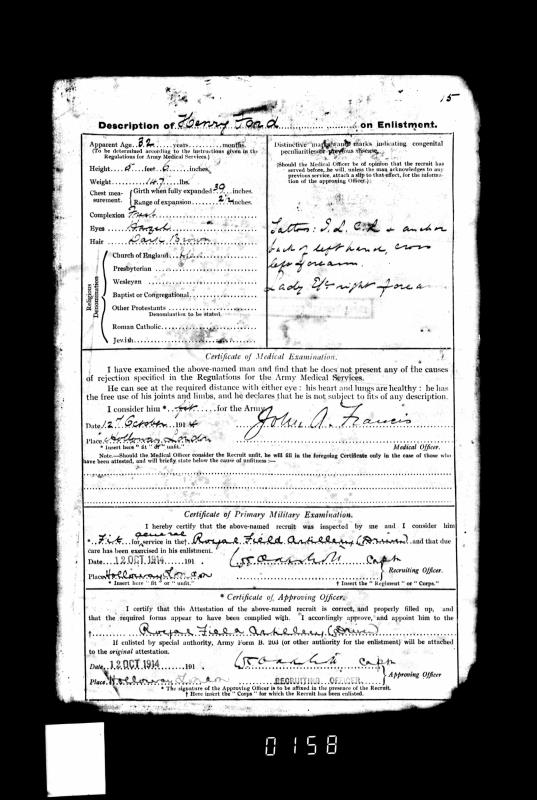 15
Description of Henry Ford on Enlistment.
Apparent Age 32 years months.
(To be determined according to the instructions given in the
Regulations for Army Medical Services.)
Height 5 feet 6 inches
Weight 147 lbs.
Chest measurement. Girth when fully expanded 39 inches.
Range of expansion 2½ inches.
Complexion Fresh
Eyes Hazel
Hair Dark Brown
Religious Denomination
Church of England
Presbyterian
Wesleyan
Baptist or Congregational
Other Protestants
Denomination to be stated.
Roman Catholic
Jewish
Distinctive marks, and marks indicating congenital
peculiarities or previous disease.
(Should the Medical Officer be of opinion that the recruit has
served before, he will, unless the man acknowledges to any
previous service, attach a slip to that effect, for the informa-
tion of the approving Officer.)
Tattoo: anchor
back of left hand, cross
left forearm.
Lady right forea
Certificate of Medical Examination.
I have examined the above-named man and find that he does not present any of the causes
of rejection specified in the Regulations for the Army Medical Services.
He can see at the required distance with either eye; his heart and lungs are healthy; he has
the free use of his joints and limbs, and he declares that he is not subject to fits of any description.
I consider him * fit for the Army.
Date 12th October 1914 John A. Francis
Place Holloway London Medical Officer.
* Insert here "fit" or "unfit."
Note.—Should the Medical Officer consider the Recruit unfit, he will fill in the foregoing Certificate only in the case of those who
have been attested, and will briefly state below the cause of unfitness:—
Certificate of Primary Military Examination.
I hereby certify that the above-named recruit was inspected by me and I consider him
* Fit for general service in the † Royal Field Artillery (Driver) and that due
care has been exercised in his enlistment.
Date 12 OCT 1914 191 . Capt
Place Holloway London Recruiting Officer.
* Insert here "fit" or "unfit." † Insert the "Regiment" or "Corps."
* Certificate of Approving Officer.
I certify that this Attestation of the above-named recruit is correct, and properly filled up, and
that the required forms appear to have been complied with. I accordingly approve, and appoint him to the
† Royal Field Artillery (Driver)
If enlisted by special authority, Army Form B. 203 (or other authority for the enlistment) will be attached
to the original attestation.
Date 12 OCT 1914 191 . Capt
Place Holloway London RECRUITING OFFICER Approving Officer
* The signature of the Approving Officer is to be affixed in the presence of the Recruit.
† Here insert the "Corps" for which the Recruit has been enlisted.
0158